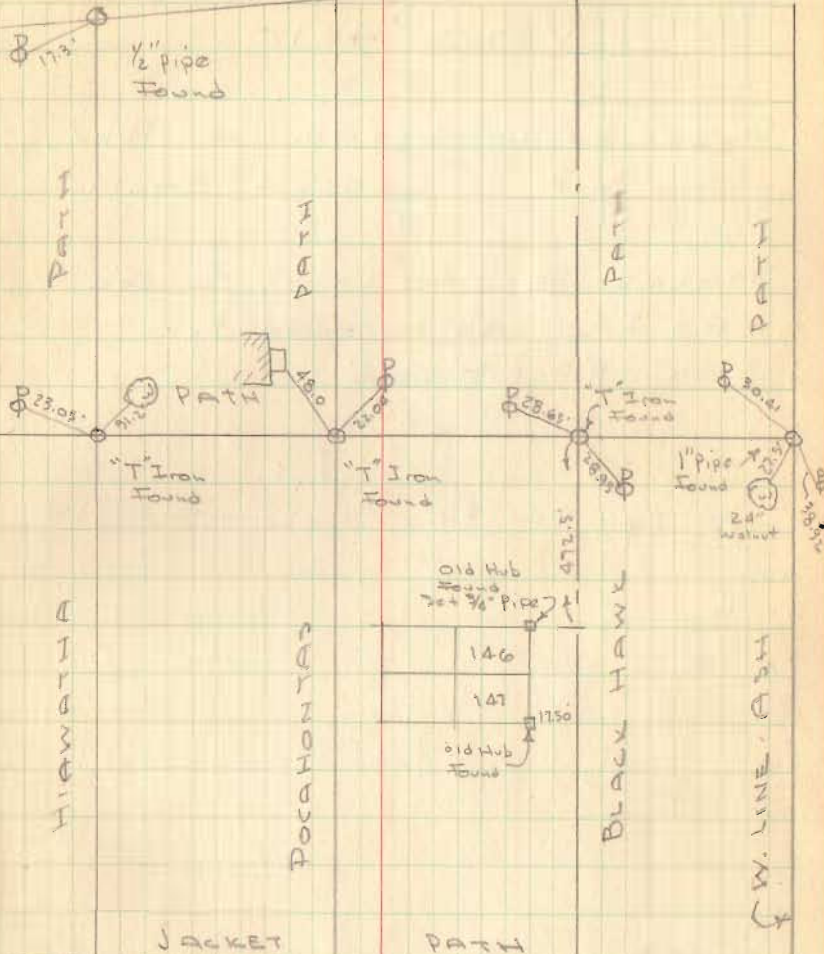 17.3'
1/2" pipe
Found
PATH
PATH
PATH
PATH
23.05'
31.2'
PATH
48.0
22.04
28.65'
"T" Iron
Found
30.41
"T" Iron
Found
"T" Iron
Found
28.95
1" pipe
Found
24"
walnut
38.92
472.5'
Old Hub
Found
Set 3/4" Pipe
146
147
17.50'
Old Hub
Found
HIAWATHA
POCAHONTAS
BLACK HAWK
W. LINE. ASH
JACKET PATH